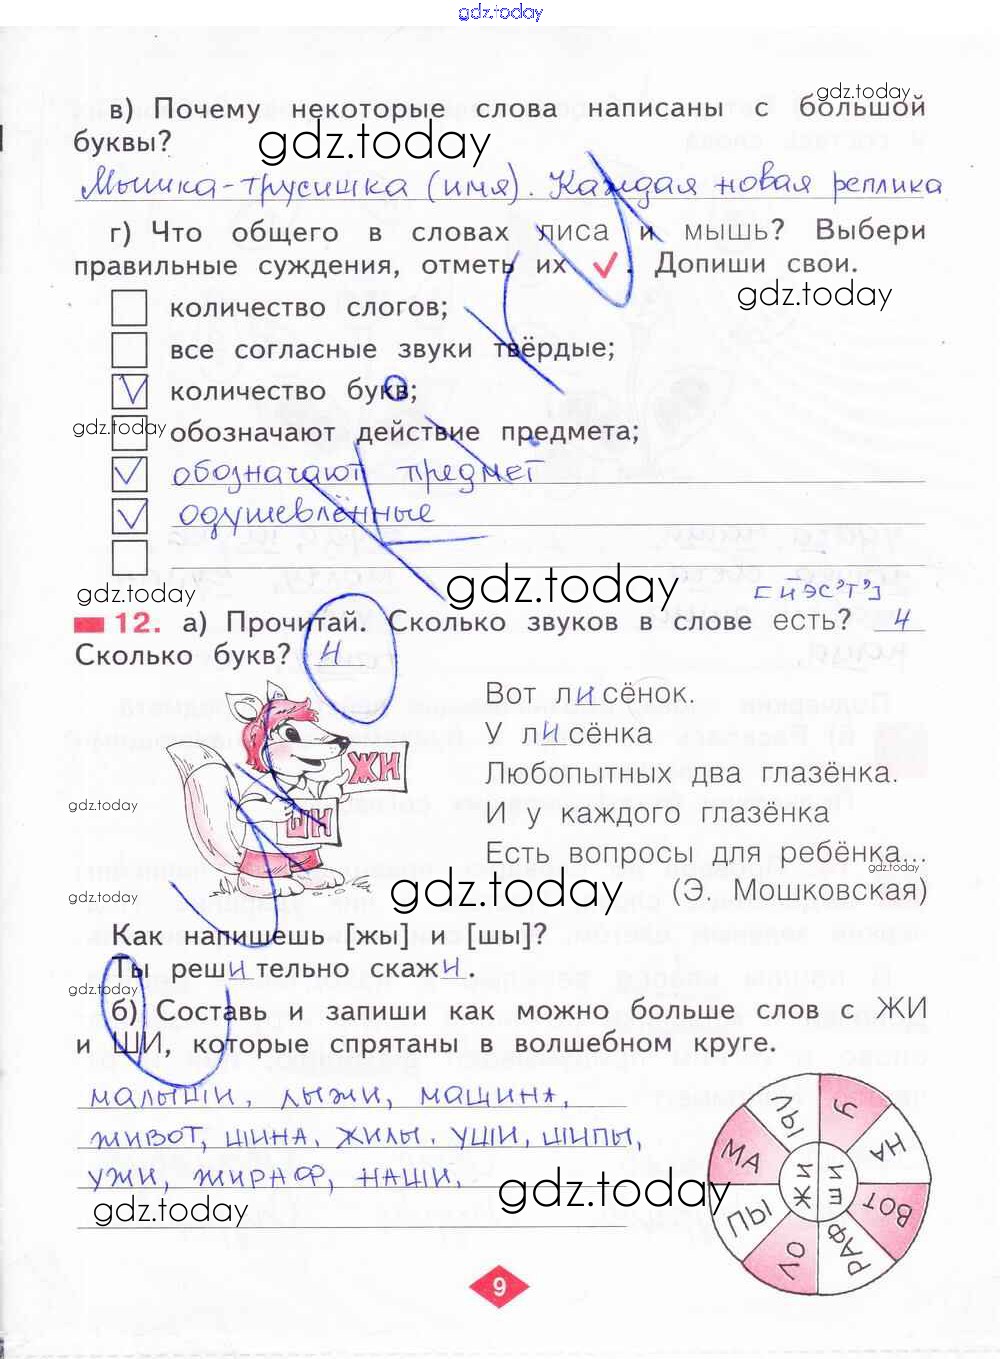 gdz.today
gdz.today
в) Почему некоторые слова написаны с большой
буквы?
gdz.today
Мышка-трусишка (имя). Каждая новая реплика
г) Что общего в словах лиса и мышь? Выбери
правильные суждения, отметь их ✓. Допиши свои.
gdz.today
количество слогов;
все согласные звуки твёрдые;
V количество букв;
gdz.today
обозначают действие предмета;
V обозначают предмет
V одушевлённые
gdz.today
gdz.today
[йэс'т']
12. а) Прочитай. Сколько звуков в слове есть? 4
Сколько букв? 4
Вот лисёнок.
У лисёнка
Любопытных два глазёнка.
И у каждого глазёнка
Есть вопросы для ребёнка...
(Э. Мошковская)
ЖИ
ШИ
gdz.today
gdz.today
gdz.today
gdz.today
Как напишешь [жы] и [шы]?
Ты решительно скажи.
gdz.today
б) Составь и запиши как можно больше слов с ЖИ
и ШИ, которые спрятаны в волшебном круге.
малыши, лыжи, машина,
живот, шина, жилы, уши, шипы,
ужи, жираф, наши.
gdz.today
gdz.today
МА
ЛЫ
У
НА
ВОТ
РАФ
ЛО
ПЫ
ЖИ
ШИ
9